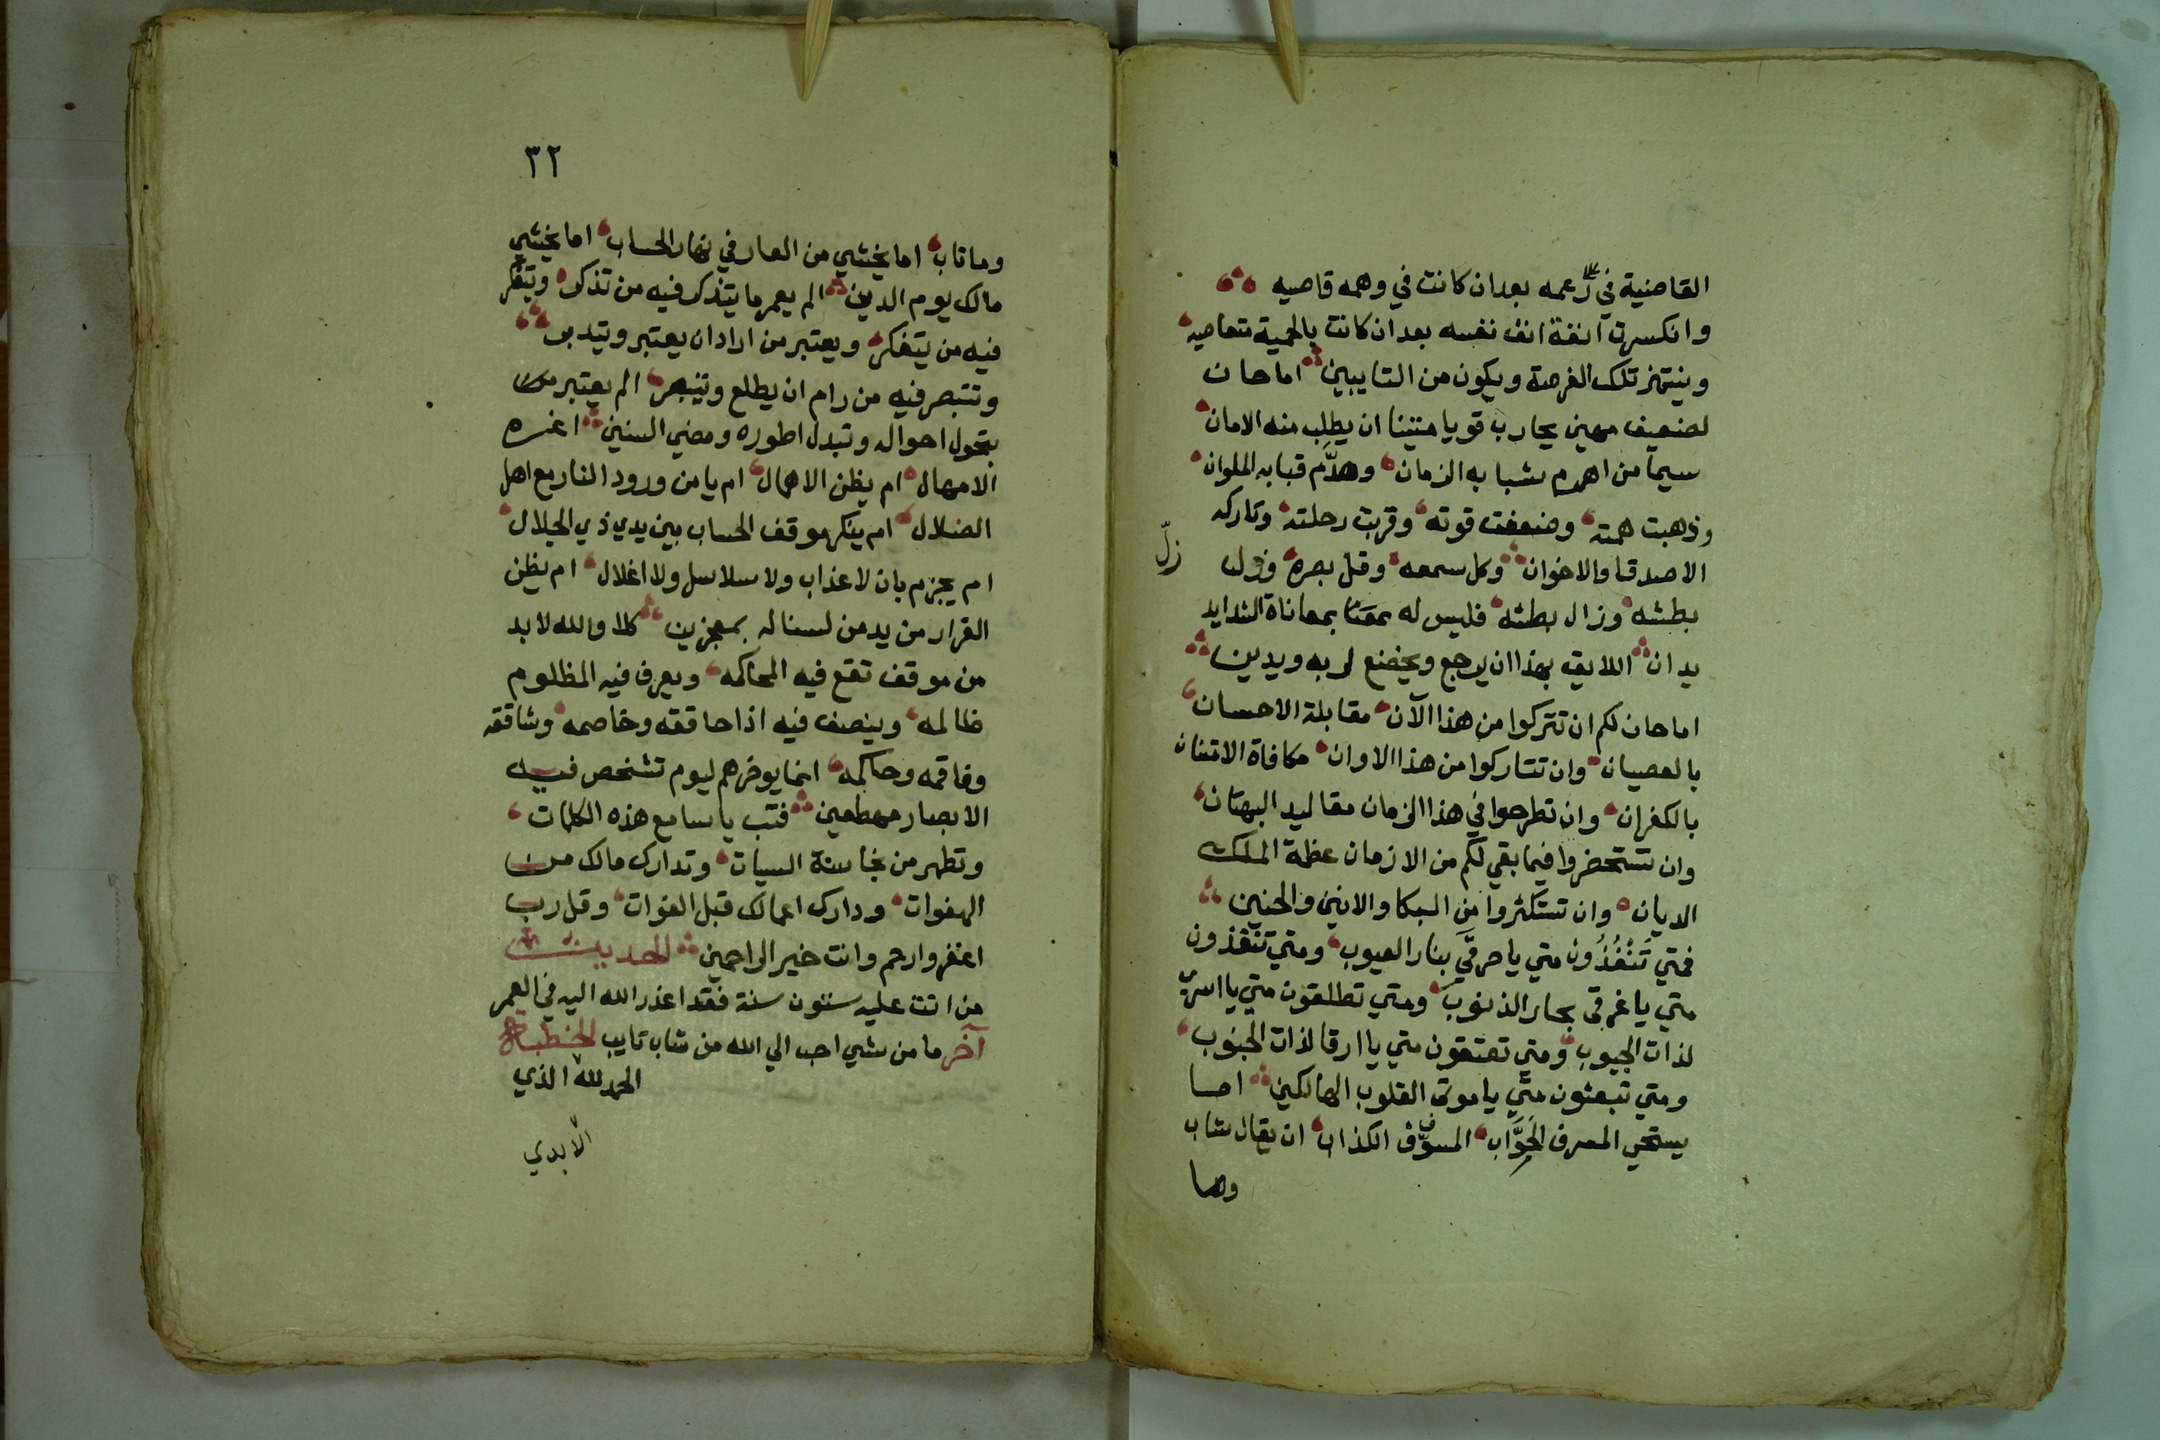 القاضية في زعمه بعد ان كانت في وهمه قاصيه
وانكسرت انفة انف نفسه بعد ان كانت بالحمية متعاصيه
وينتهز تلك الفرصة ويكون من التايبين اما حان
لضعيف مهين يحارب قويا متينا ان يطلب منه الامان
سيما من اهرم شبابه الزمان وهدّم قبابه الملوان
وذهبت همته وضعفت قوته وقربت رحلته وتاركه
الاصدقا والاخوان وكل سمعه وقل بصره وزل
زلّ
بطشه وزال بطشه فليس له بمعاناة الشدايد
يدان اللايق بهذا ان يرجع ويخضع لربه ويدين
اما حان لكم ان تتركوا من هذا الآن مقابلة الاحسان
بالعصيان وان تتاركوا من هذا الاوان مكافاة الامتنان
بالكفران وان تطرحوا في هذا الزمان مقاليد البهتان
وان تستحضروا فيما بقي لكم من الازمان عظة الملك
الديان وان تستكثروا من البكا والانين والحنين
فمتي تَنْفُذُون متي يا حرقَي بنار العيوب ومتي تنقذون
متي يا غرقى بحار الذنوب ومتي تطلقون متي يا اسري
لذات الجيوب ومتي تعتقون متي يا ارقا لذات الجنوب
ومتي تبعثون متي يا موتى القلوب الهالكين اما
يستحي المسرف الحَوَّاب المسوّف الكذاب ان يقال شاب
وما
٣٢
وما تاب اما يخشي من العار في نهار الحساب اما يخشي
مالك يوم الدين الم يعمر ما يتذكر فيه من تذكر ويتفكر
فيه من يتفكر ويعتبر من اراد ان يعتبر ويتدبر
وتتبصر فيه من رام ان يطلع ويتبصر الم يعتبر من
بتحول احواله وتبدل اطوره ومضي السنين اغره
الامهال ام يظن الاهمال ام يامن ورود النار مع اهل
الضلال ام ينكر موقف الحساب بين يدي ذي الجلال
ام يجزم بان لا عذاب ولا سلاسل ولا اغلال ام يظن
القرار من يد من لسنا له بمعجزين كلا والله لا بد
من موقف تقع فيه المحاكمه ويعرف فيه المظلوم
ظالمه وينصف فيه اذا حاققه وخاصمه وشاققه
وفاقمه وحاكمه انما يوخرهم ليوم تشخص فيه
الابصار مهطعين فتب يا سامع هذه الكلمات
وتطهر من نجاسة السيات وتدارك مالك من
الهفوات ودارك اعمالك قبل الفوات وقل رب
اغفر وارحم وانت خير الراحمين الحديث
من اتت عليه ستون سنة فقد اعذر الله اليه في العمر
آخر ما من شي احب الي الله من شاب تايب الخطبة
الحمد لله الذي
الابدي